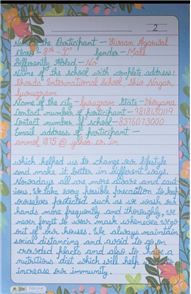 2
Name of the Participant - Kiran Agarwal
Class - "X" Gender - Male
Differently Abled - No
Name of the school with complete address:
International School, Shiv Nagar,
Gurugram
Name of the city - Gurugram State - Haryana
Contact number of participant -
Contact number of school -
Email address of participant -
which helped us to change our lifestyle
and make it better in different ways.
Nowadays all are more aware and caut-
ious. We take every possible precaution to keep
ourselves protected such as we wash our
hands more frequently and thoroughly, we
never forget to wear mask whenever we go
out of our houses. We always maintain
social distancing and avoid to go in
crowded places and also to have a
nutritious diet which will help to
increase our immunity.